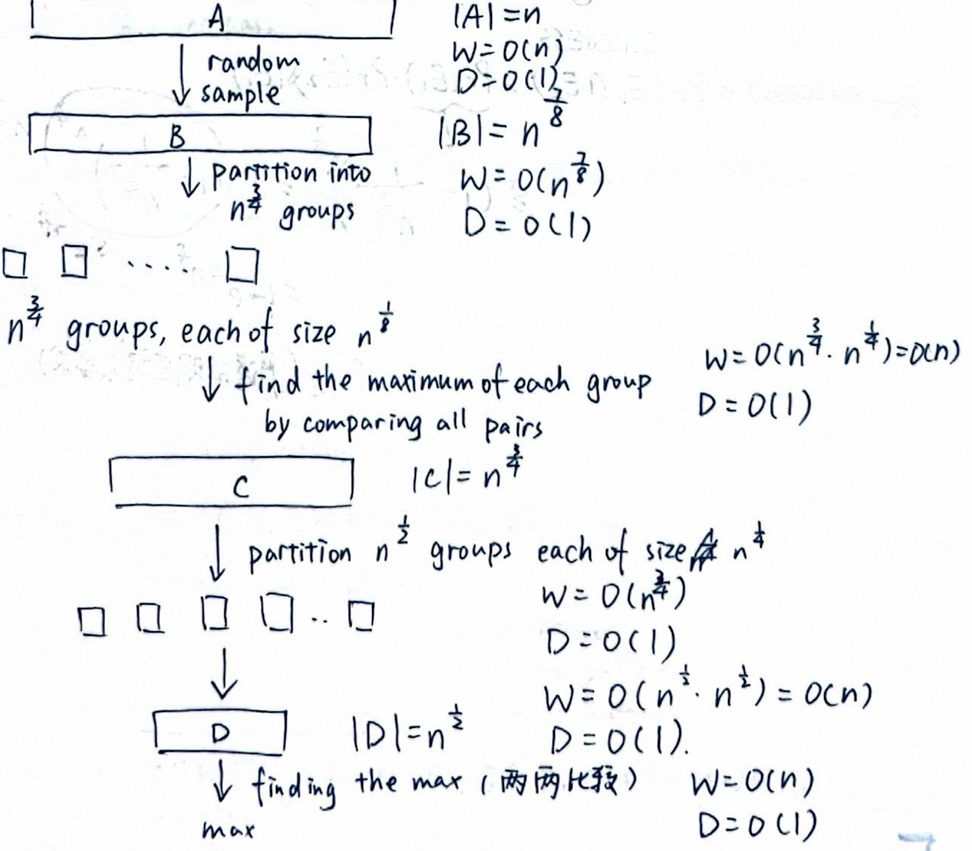 A |A| = n
random W = O(n)
sample D = O(1)
B |B| = n^{7/8}
partition into W = O(n^{7/8})
n^{3/4} groups D = O(1)
....
n^{3/4} groups, each of size n^{1/8}
W = O(n^{3/4} · n^{1/4}) = O(n)
find the maximum of each group D = O(1)
by comparing all pairs
C |C| = n^{3/4}
partition n^{1/2} groups each of size n^{1/4}
W = O(n^{3/4})
..
D = O(1)
W = O(n^{1/2} · n^{1/2}) = O(n)
D |D| = n^{1/2} D = O(1).
finding the max (两两比较) W = O(n)
max D = O(1)